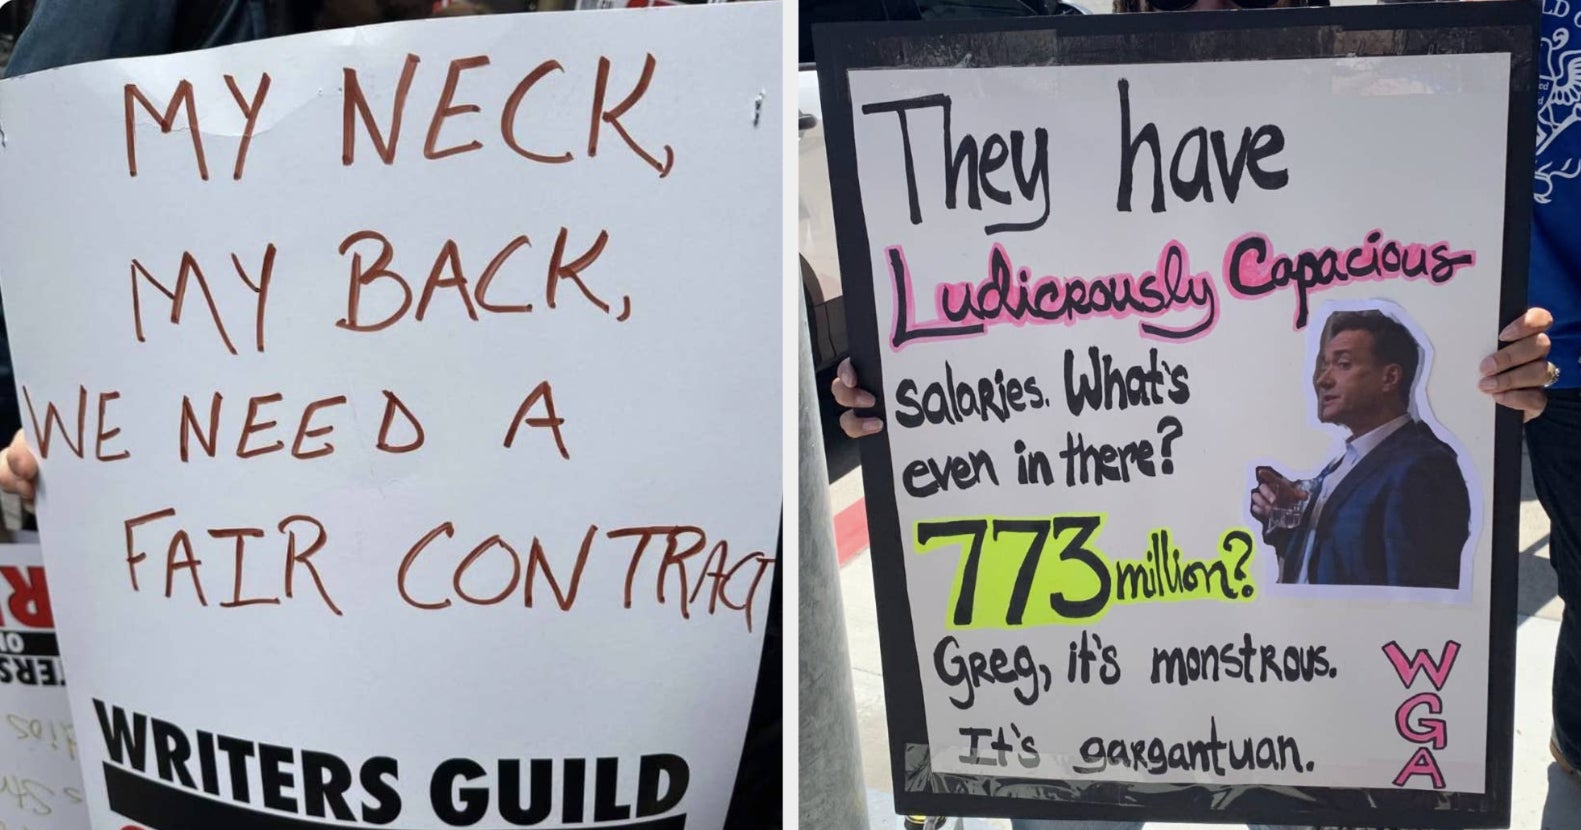 MY NECK,
MY BACK,
WE NEED A
FAIR CONTRACT
WRITERS GUILD
They have
Ludicrously Capacious
salaries. What's
even in there?
773 million?
Greg, it's monstrous.
It's gargantuan.
WGA